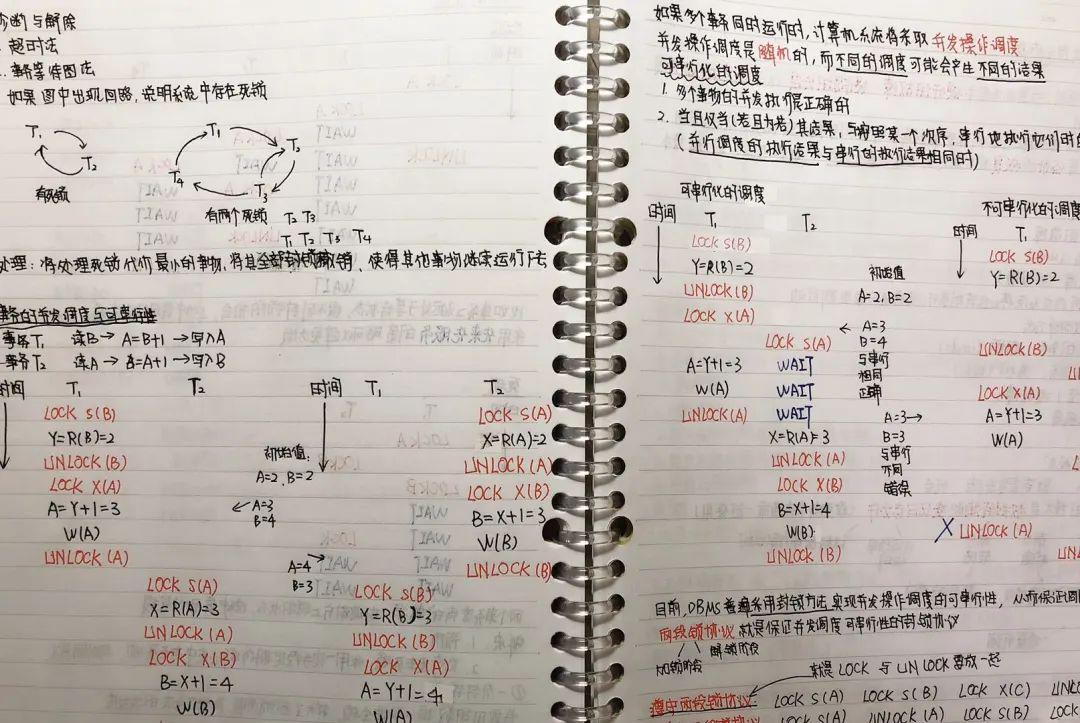 诊断与解除
超时法
事务等待图法
如果图中出现回路,说明系统中存在死锁
T₁
T₂
有死锁
T₁
T₂
T₃
T₄
有两个死锁 T₂ T₃
T₁ T₂ T₃ T₄
处理:将处理死锁代价最小的事物,将其全部撤销,使得其他事物继续运行下去
事务的并发调度与可串行性
事务T₁ 读B → A=B+1 → 写入A
事务T₂ 读A → B=A+1 → 写入B
时间 T₁ T₂
LOCK S(B)
Y=R(B)=2
UNLOCK(B)
LOCK X(A)
A=Y+1=3
W(A)
UNLOCK(A)
LOCK S(A)
X=R(A)=3
UNLOCK(A)
LOCK X(B)
B=X+1=4
W(B)
初始值:
A=2,B=2
←A=3
B=4
A=4→
B=3
时间 T₁ T₂
LOCK S(A)
X=R(A)=2
UNLOCK(A)
LOCK X(B)
B=X+1=3
W(B)
UNLOCK(B)
LOCK S(B)
Y=R(B)=3
UNLOCK(B)
LOCK X(A)
A=Y+1=4
W(A)
如果多个事务同时运行时,计算机系统将采取并发操作调度
并发操作调度是随机的,而不同的调度可能会产生不同的结果
可串行化的调度
1. 多个事物的并发执行是正确的
2. 当且仅当(若且为若)其结果,与按照某一个次序,串行地执行他们时的
(并行调度的执行结果与串行的执行结果相同时)
可串行化的调度
时间 T₁ T₂
LOCK S(B)
Y=R(B)=2
UNLOCK(B)
LOCK X(A)
LOCK S(A)
A=Y+1=3 WAIT
W(A) WAIT
UNLOCK(A) WAIT
X=R(A)=3
UNLOCK(A)
LOCK X(B)
B=X+1=4
W(B)
UNLOCK(B)
初始值
A=2,B=2
← A=3
B=4
与串行
相同
正确
A=3→
B=3
与串行
不同
错误
不可串行化的调度
时间 T₁
LOCK S(B)
Y=R(B)=2
UNLOCK(B)
LOCK X(A)
A=Y+1=3
W(A)
X UNLOCK(A)
目前,DBMS普遍采用封锁方法,实现并发操作调度的可串行性,从而保证
两段锁协议 就是保证并发调度可串行性的封锁协议
加锁阶段 解锁阶段
就是LOCK与UNLOCK要放一起
遵守两段锁协议 LOCK S(A) LOCK S(B) LOCK X(C)
LOCK S(A) UNLOCK(A) LOCK S(B)